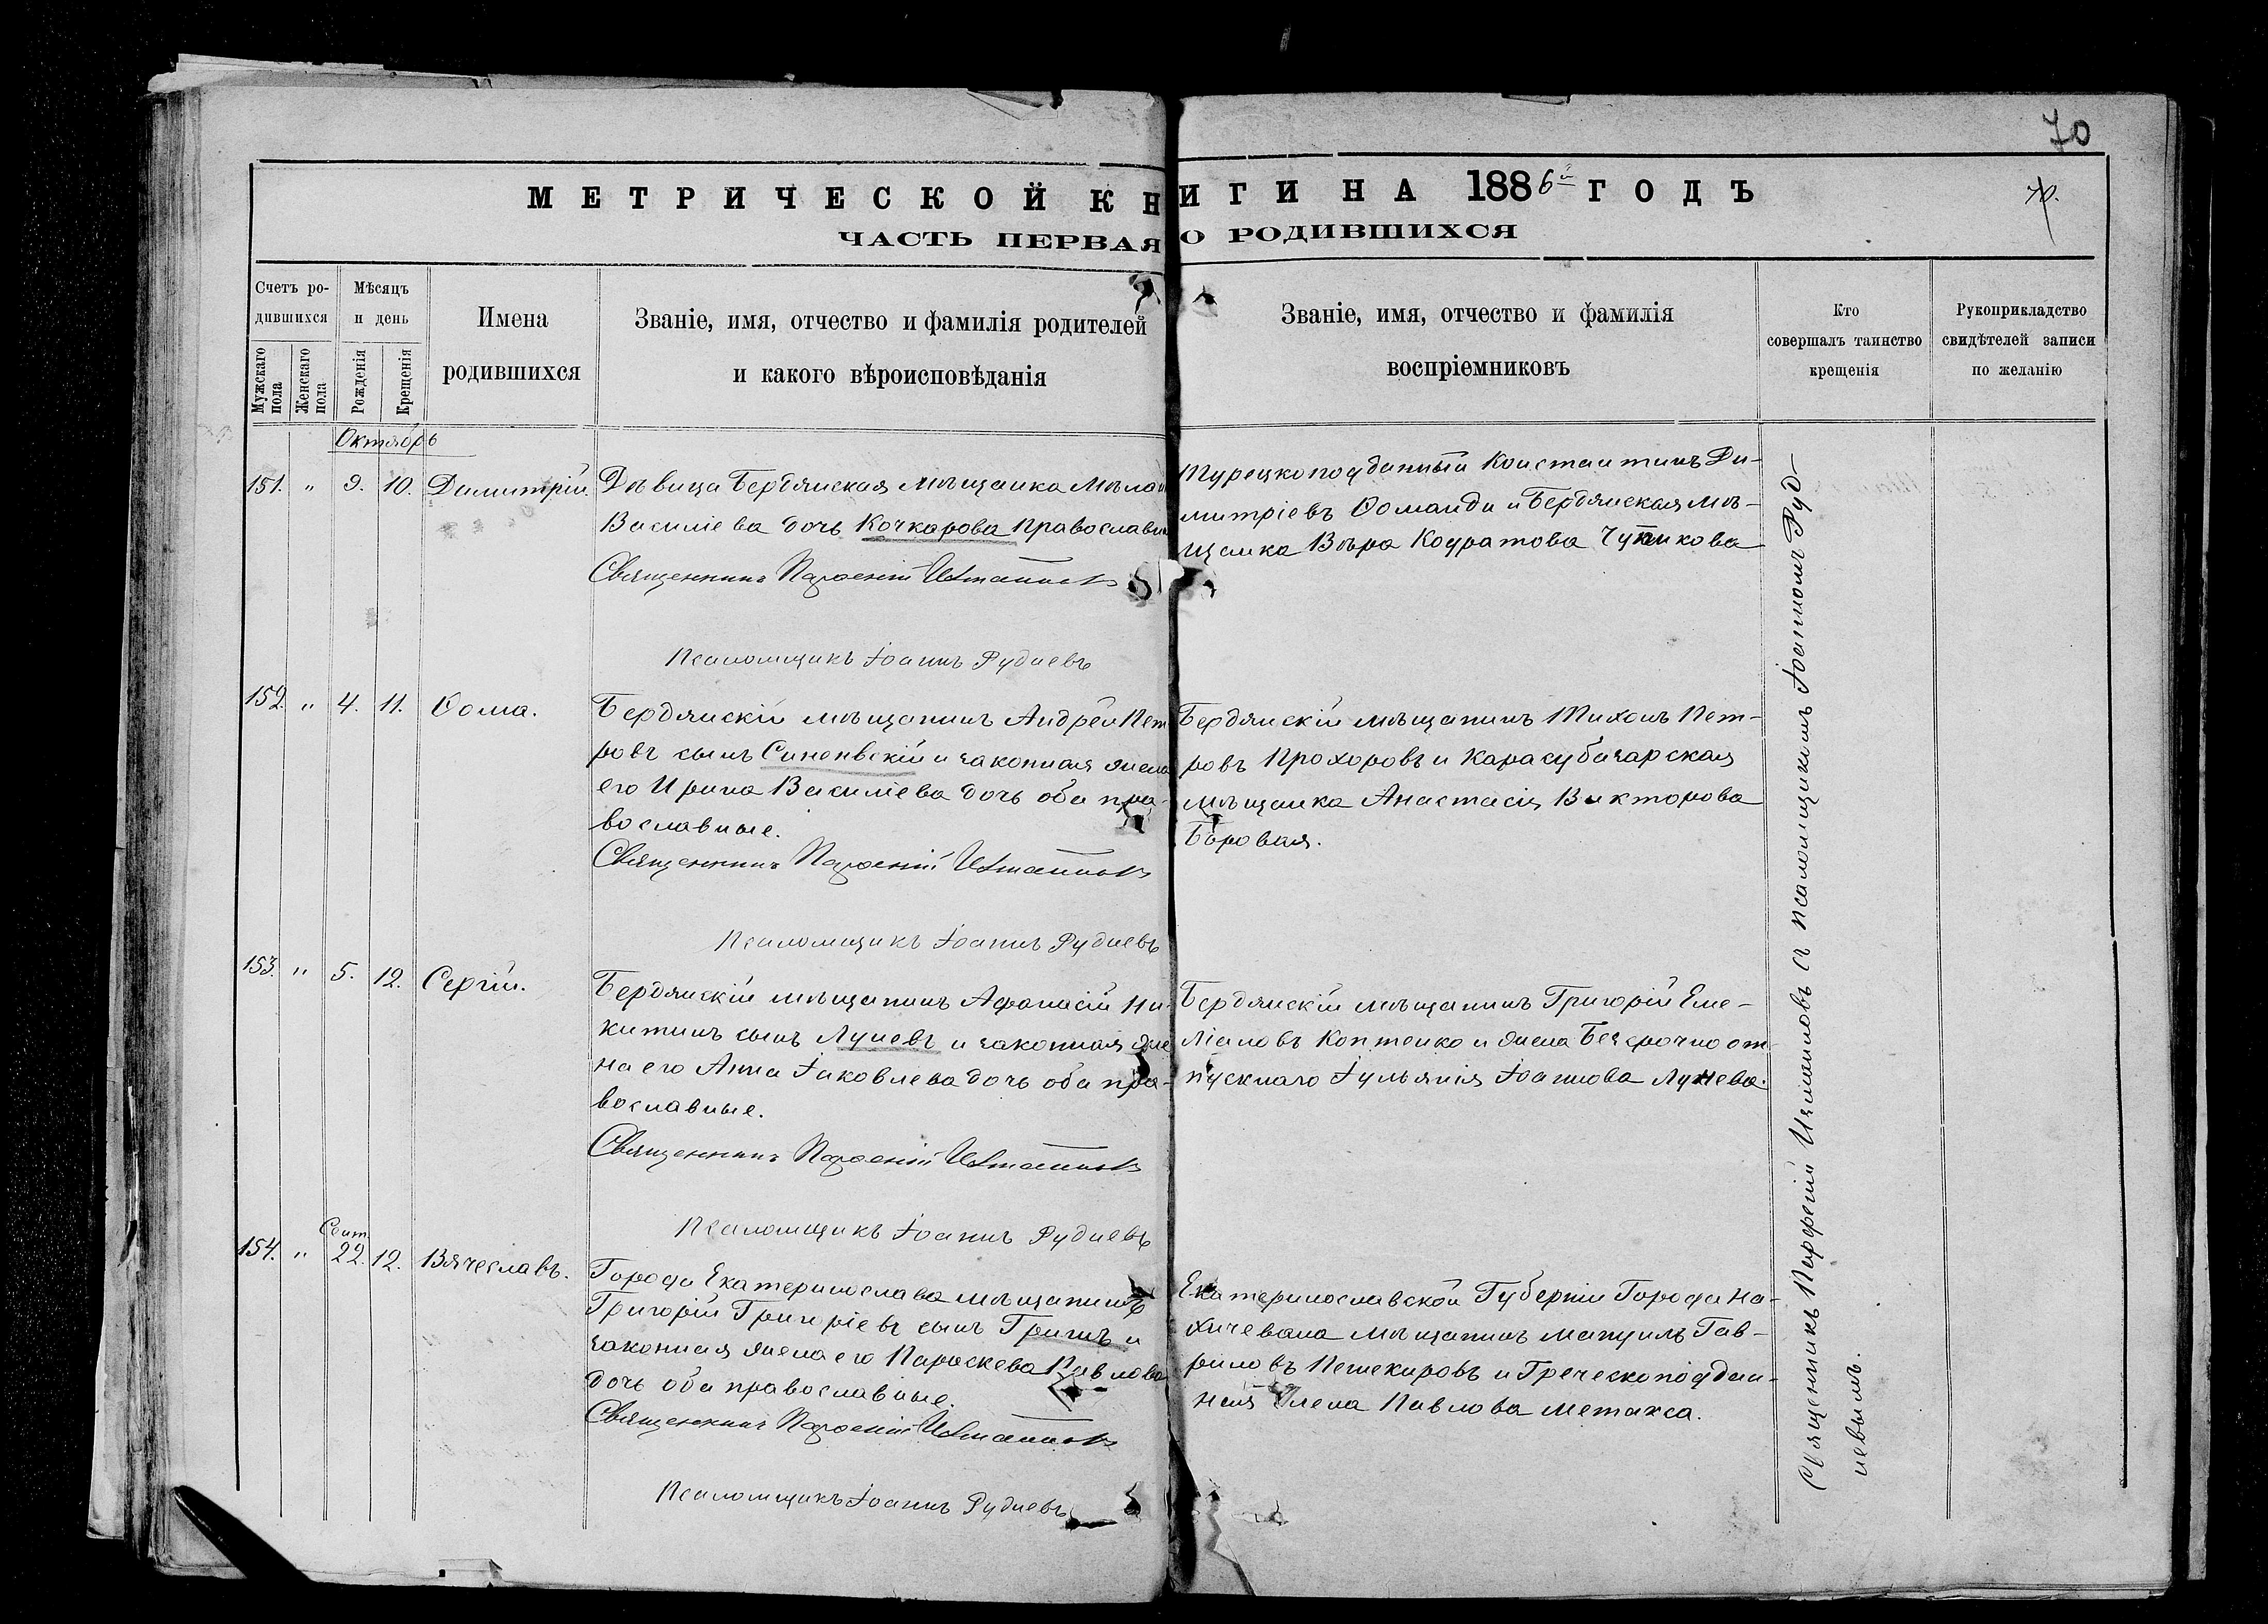 70
МЕТРИЧЕСКОЙ КНИГИ НА 1886й ГОДЪ
70.
ЧАСТЬ ПЕРВАЯ О РОДИВШИХСЯ
Счетъ ро-
дившихся
Мужскаго пола
Женскаго пола
Мѣсяцъ
и день
Рожденія
Крещенія
Имена
родившихся
Званіе, имя, отчество и фамилія родителей
и какого вѣроисповѣданія
Званіе, имя, отчество и фамилія
воспріемниковъ
Кто
совершалъ таинство
крещенія
Рукоприкладство
свидѣтелей записи
по желанію
Октябрь
151. " 9. 10. Димитрій.
Дѣвица Бердянская мѣщанка
Василіева дочь Кочкарова православн
Священникъ Парѳеній
Псаломщикъ Іоаннъ Рудневъ
Турецкоподданный Константинъ Ди-
митріевъ и Бердянская мѣ-
щанка Вѣра Кодратова
152. " 4. 11. Ѳома.
Бердянскій мѣщанинъ Андрей Пет
ровъ сынъ и законная жена
его Ирина Василіева дочь оба пра-
вославные.
Священникъ Парѳеній
Псаломщикъ Іоаннъ Рудневъ
Бердянскій мѣщанинъ Тихонъ Пет-
ровъ Прохоровъ и Карасубазарская
мѣщанка Анастасія Викторова
Боровая.
153. " 5. 12. Сергій.
Бердянскій мѣщанинъ Афанасій Ни-
китинъ сынъ Луневъ и законная же
на его Анна Іаковлева дочь оба пра-
вославные.
Священникъ Парѳеній
Псаломщикъ Іоаннъ Рудневъ
Бердянскій мѣщанинъ Григорій Еме-
ліановъ Коптенко и жена безсрочноот-
пускнаго Іульянія Іоаннова Лунева.
154. " Сент. 22. 12. Вячеславъ.
Города Екатеринослава мѣщанинъ
Григорій Григоріевъ сынъ и
законная жена его Параскева Павлова
дочь оба православные.
Священникъ Парѳеній
Псаломщикъ Іоаннъ Рудневъ
Екатеринославской Губерніи Города На-
хичевана мѣщанинъ Мануилъ Гав-
риловъ и Греческоподдан-
ная Елена Павлова Метакса.
Священникъ Парѳеній съ псаломщикомъ Іоанномъ Руд-
невымъ.